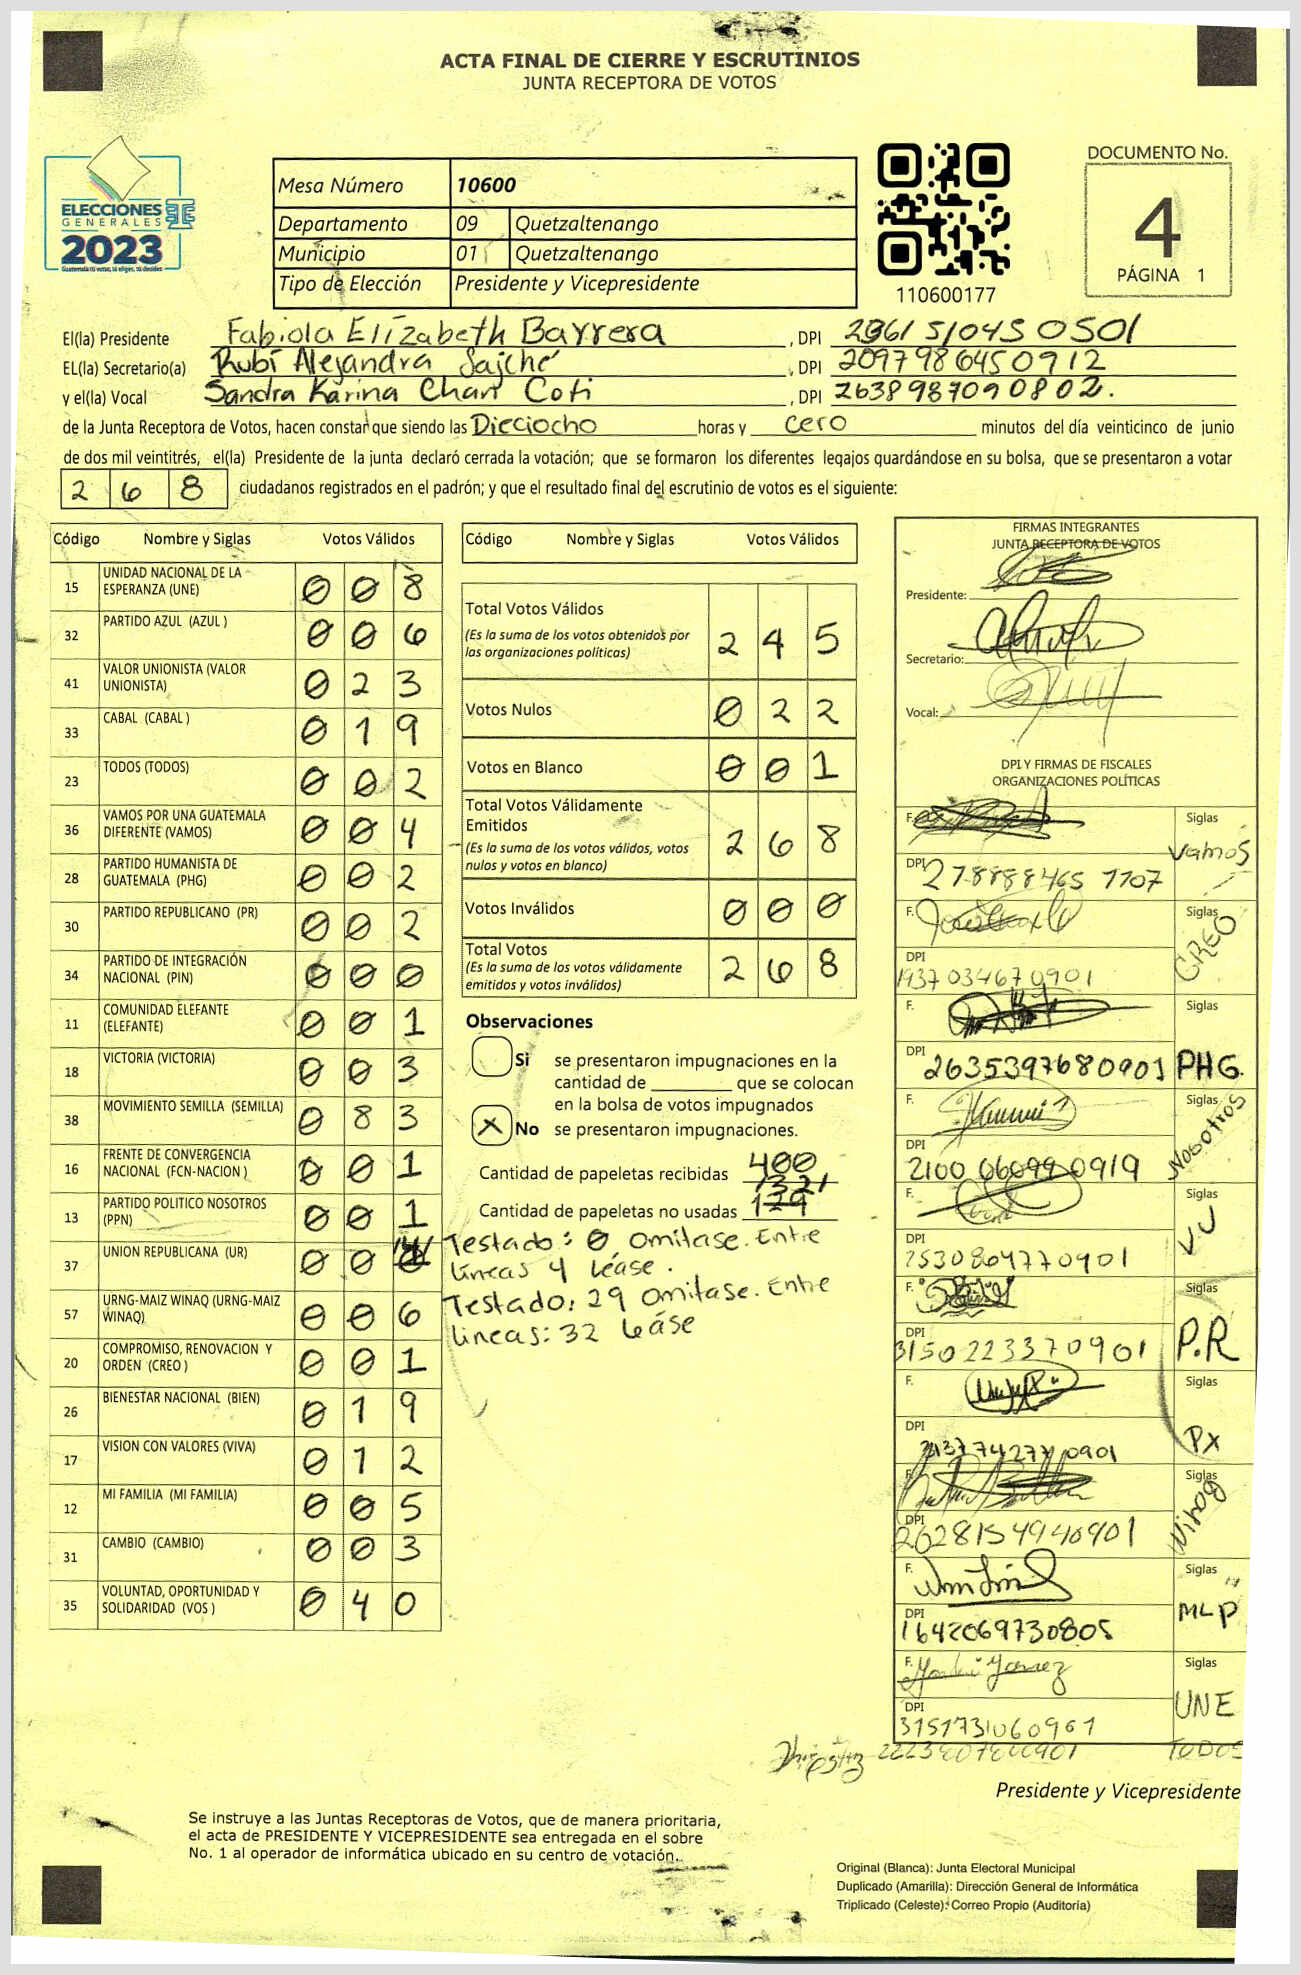 ACTA FINAL DE CIERRE Y ESCRUTINIOS
JUNTA RECEPTORA DE VOTOS
ELECCIONES
GENERALES
2023
Guatemala tú votas, tú eliges, tú decides
Mesa Número 10600
Departamento 09 Quetzaltenango
Municipio 01 Quetzaltenango
Tipo de Elección Presidente y Vicepresidente
110600177
DOCUMENTO No.
4
PÁGINA 1
El(la) Presidente Fabiola Elízabeth Barrera , DPI
EL(la) Secretario(a) Rubí Alejandra Sajché , DPI 2097986450912
y el(la) Vocal Sandra Karina Chan Coti , DPI 2638987090802.
de la Junta Receptora de Votos, hacen constar que siendo las Dieciocho horas y cero minutos del día veinticinco de junio
de dos mil veintitrés, el(la) Presidente de la junta declaró cerrada la votación; que se formaron los diferentes legajos guardándose en su bolsa, que se presentaron a votar
268 ciudadanos registrados en el padrón; y que el resultado final del escrutinio de votos es el siguiente:
Código Nombre y Siglas Votos Válidos
15 UNIDAD NACIONAL DE LA ESPERANZA (UNE) 008
32 PARTIDO AZUL (AZUL ) 006
41 VALOR UNIONISTA (VALOR UNIONISTA) 023
33 CABAL (CABAL ) 019
23 TODOS (TODOS) 002
36 VAMOS POR UNA GUATEMALA DIFERENTE (VAMOS) 004
28 PARTIDO HUMANISTA DE GUATEMALA (PHG) 002
30 PARTIDO REPUBLICANO (PR) 002
34 PARTIDO DE INTEGRACIÓN NACIONAL (PIN) 000
11 COMUNIDAD ELEFANTE (ELEFANTE) 001
18 VICTORIA (VICTORIA) 003
38 MOVIMIENTO SEMILLA (SEMILLA) 083
16 FRENTE DE CONVERGENCIA NACIONAL (FCN-NACION ) 001
13 PARTIDO POLITICO NOSOTROS (PPN) 001
37 UNION REPUBLICANA (UR) 00
57 URNG-MAIZ WINAQ (URNG-MAIZ WINAQ) 006
20 COMPROMISO, RENOVACION Y ORDEN (CREO ) 001
26 BIENESTAR NACIONAL (BIEN) 019
17 VISION CON VALORES (VIVA) 012
12 MI FAMILIA (MI FAMILIA) 005
31 CAMBIO (CAMBIO) 003
35 VOLUNTAD, OPORTUNIDAD Y SOLIDARIDAD (VOS ) 040
Código Nombre y Siglas Votos Válidos
Total Votos Válidos
(Es la suma de los votos obtenidos por
las organizaciones políticas) 245
Votos Nulos 022
Votos en Blanco 001
Total Votos Válidamente
Emitidos
(Es la suma de los votos válidos, votos
nulos y votos en blanco) 268
Votos Inválidos 000
Total Votos
(Es la suma de los votos válidamente
emitidos y votos inválidos) 268
Observaciones
Si se presentaron impugnaciones en la
cantidad de ________ que se colocan
en la bolsa de votos impugnados
X No se presentaron impugnaciones.
Cantidad de papeletas recibidas 400
Cantidad de papeletas no usadas
Testado: 0 omitase. Entre
líneas 4 léase.
Testado: 29 omitase. Entre
líneas: 32 léase
FIRMAS INTEGRANTES
JUNTA RECEPTORA DE VOTOS
Presidente:
Secretario:
Vocal:
DPI Y FIRMAS DE FISCALES
ORGANIZACIONES POLÍTICAS
F. Siglas
Vamos
DPI
F. Siglas
CREO
DPI 1937034670901
F. Siglas
DPI 2635397680901 PHG.
F. Siglas
Nosotros
DPI
F. Siglas
VU
DPI 2530864770901
F. Siglas
DPI 3150223370901 P.R
F. Siglas
DPI Px
F. Siglas
Winaq
DPI 2628154940901
F. Siglas
MLP
DPI 1642069730805
F. Siglas
UNE
DPI 3151731060901
TODOS
Presidente y Vicepresidente
Se instruye a las Juntas Receptoras de Votos, que de manera prioritaria,
el acta de PRESIDENTE Y VICEPRESIDENTE sea entregada en el sobre
No. 1 al operador de informática ubicado en su centro de votación.
Original (Blanca): Junta Electoral Municipal
Duplicado (Amarilla): Dirección General de Informática
Triplicado (Celeste): Correo Propio (Auditoría)